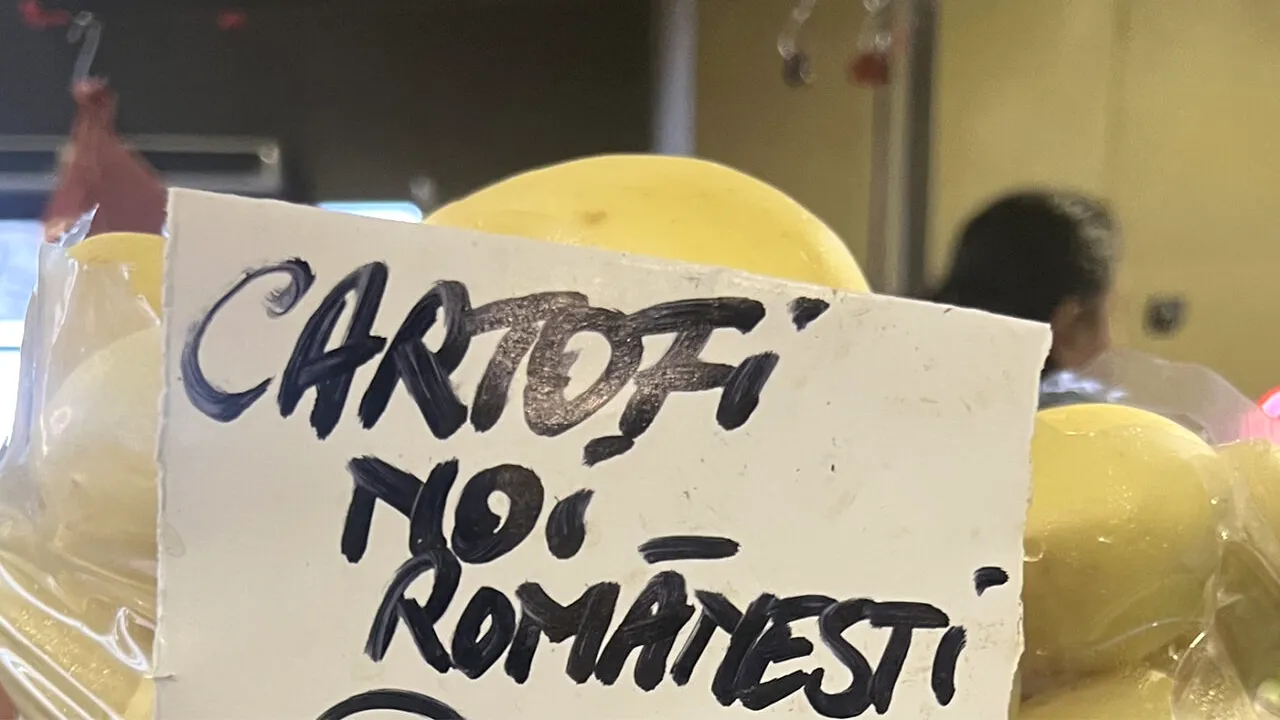 CARTOFi
NOi
ROMÂNESTi